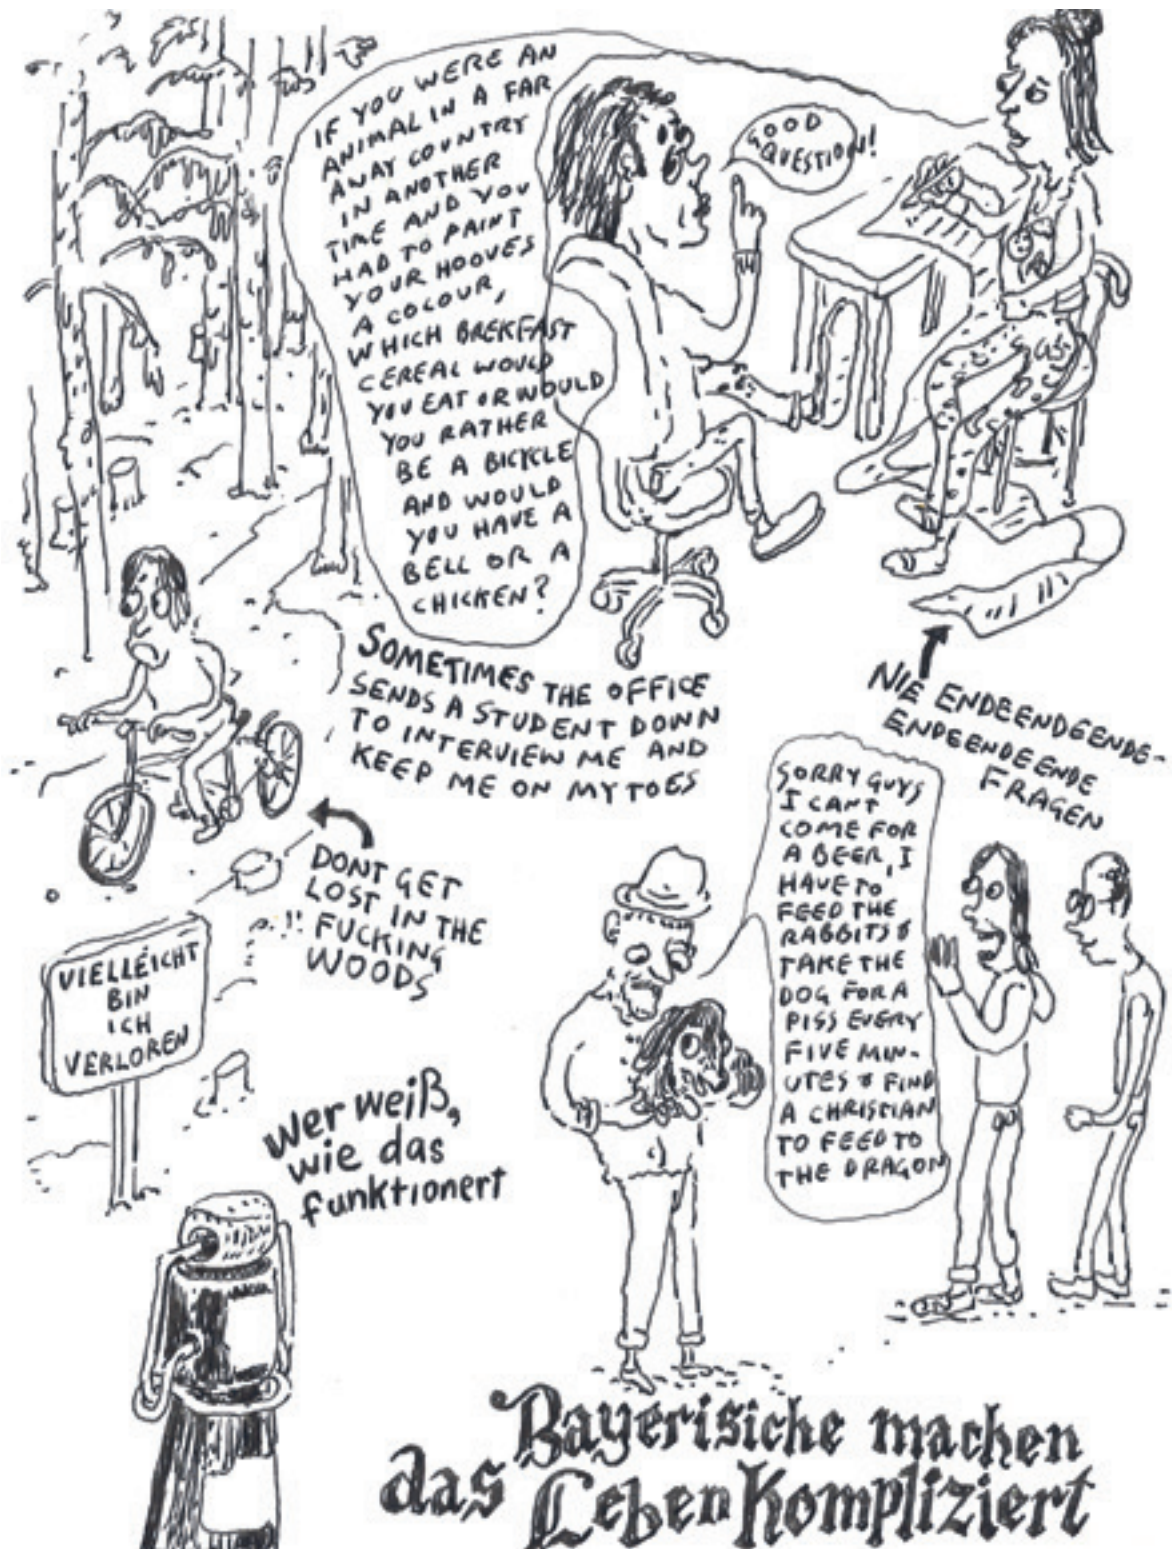 IF YOU WERE AN
ANIMAL IN A FAR
AWAY COUNTRY
IN ANOTHER
TIME AND YOU
HAD TO PAINT
YOUR HOOVES
A COLOUR,
WHICH BREKFAST
CEREAL WOULD
YOU EAT OR WOULD
YOU RATHER
BE A BICYCLE
AND WOULD
YOU HAVE A
BELL OR A
CHICKEN?
GOOD
QUESTION!
SOMETIMES THE OFFICE
SENDS A STUDENT DOWN
TO INTERVIEW ME AND
KEEP ME ON MY TOES
NIE ENDEENDEENDE-
ENDEENDEENDE
FRAGEN
DONT GET
LOST IN THE
FUCKING
WOODS
VIELLEICHT
BIN
ICH
VERLOREN
SORRY GUYS
I CANT
COME FOR
A BEER, I
HAVE TO
FEED THE
RABBITS &
TAKE THE
DOG FOR A
PISS EVERY
FIVE MIN-
UTES & FIND
A CHRISTIAN
TO FEED TO
THE DRAGON
Wer weiß,
wie das
funktionert
Bayerisiche machen
das Leben Kompliziert